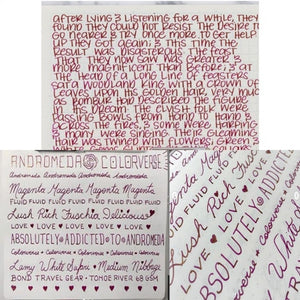 AFTER LYING & LISTENING FOR A WHILE, THEY
FOUND THEY COULD NOT RESIST THE DESIRE TO
GO NEARER & TRY ONCE MORE TO GET HELP.
UP THEY GOT AGAIN; & THIS TIME THE
RESULT WAS DISASTROUS. THE FEAST
THAT THEY NOW SAW WAS GREATER &
MORE MAGNIFICENT THAN BEFORE; & AT
THE HEAD OF A LONG LINE OF FEASTERS
SAT A WOODLAND KING WITH A CROWN OF
LEAVES UPON HIS GOLDEN HAIR, VERY MUCH
AS BOMBUR HAD DESCRIBED THE FIGURE
IN HIS DREAM. THE ELVISH FOLK WERE
PASSING BOWLS FROM HAND TO HAND &
ACROSS THE FIRES, & SOME WERE HARPING
& MANY WERE SINGING. THEIR GLEAMING
HAIR WAS TWINED WITH FLOWERS
ANDROMEDA COLORVERSE
Andromeda Andromeda Andromeda Andromeda
Magenta Magenta Magenta Magenta
FLUID FLUID FLUID FLUID FLUID FLUID
Lush Rich Fuschia Delicious
LOVE LOVE LOVE LOVE LOVE LOVE
ABSOLUTELY ADDICTED TO ANDROMEDA
Colorverse Colorverse Colorverse Colorverse
Lamy White Safari Medium Nibbage
BOND TRAVEL GEAR TOMOE RIVER 68 GSM
Magenta Mag
FLUID FLUID FLUID
Lush Rich Fusc
LOVE LOVE LOVE
ABSOLUTELY ADDICTED
Colorverse Colorverse